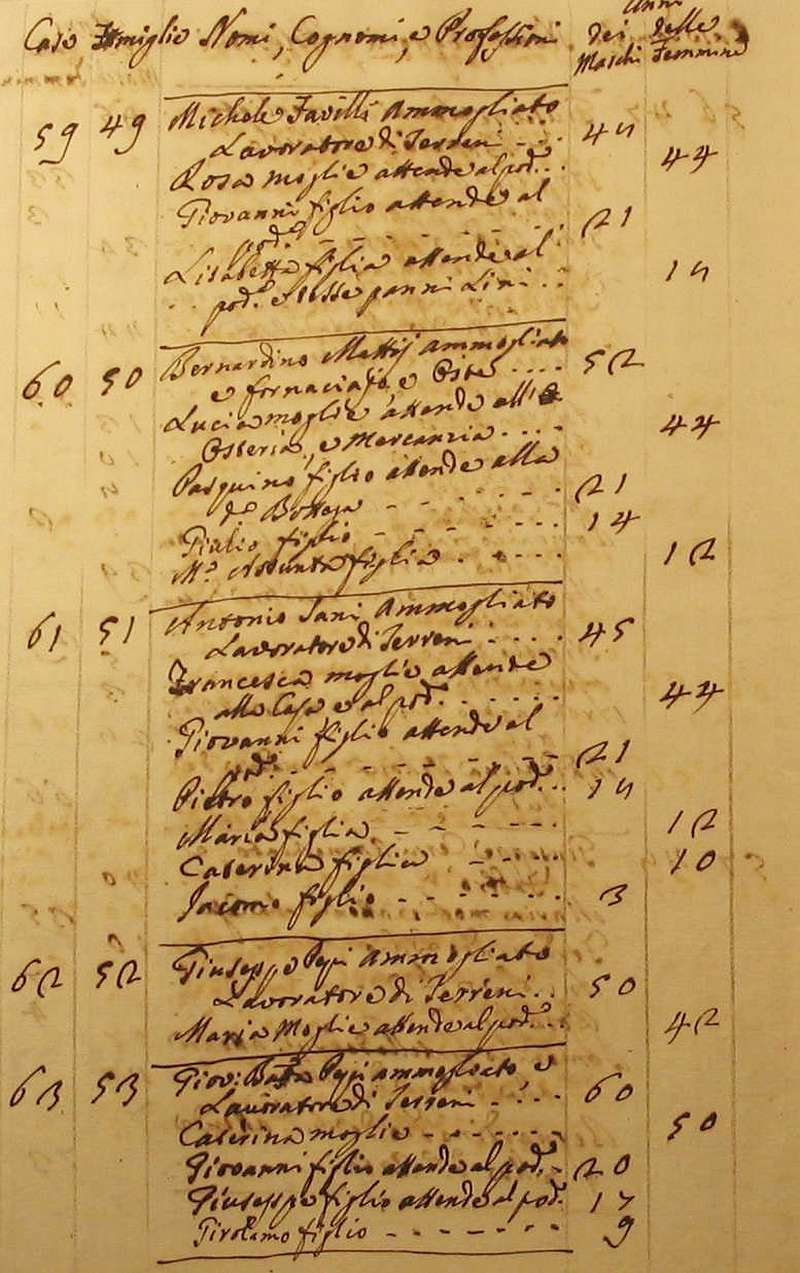 Anni
Case Famiglie Nomi, Cognomi, e Professioni dei delle
Maschi Femmine
59 49 Michele Favilli Ammogliato
Lavoratore di Terreni 45
Rosa moglie attende al pod.e 44
Giovanni figlio attende al
pod.e 21
Lisabetta figlia attende al
pod.e e tesse panni Lini 15
60 50 Bernardino Mattij Ammogliato
e fornaciajo, e Oste 52
Lucia moglie attende all'
Osteria, e Mercanzia 44
Pasquino figlio attende alla
d.a Bottega 21
Giulio figlio 14
M.a Assunta figlia 12
61 51 Antonio Sani Ammogliato
Lavoratore di Terreni 45
Francesca moglie attende
alla Casa e al pod.e 44
Giovanni figlio attende al
pod.e 21
Pietro figlio attende al pod.e 15
Maria figlia 12
Caterina figlia 10
Jacomo figlio 3
62 52 Giuseppe Pepi Ammogliato
Lavoratore di Terreni 50
Maria Moglie attende al pod.e 42
63 53 Giov: Batta Pepi ammogliato, e
Lavoratore di Terreni 60
Caterina moglie 50
Giovanni figlio attende al pod.e 20
Giuseppe figlio attende al pod.e 17
Girolamo figlio 9